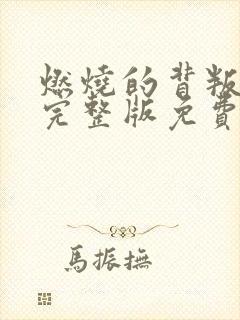 燃燒的背叛
完整版免費
馬振撫